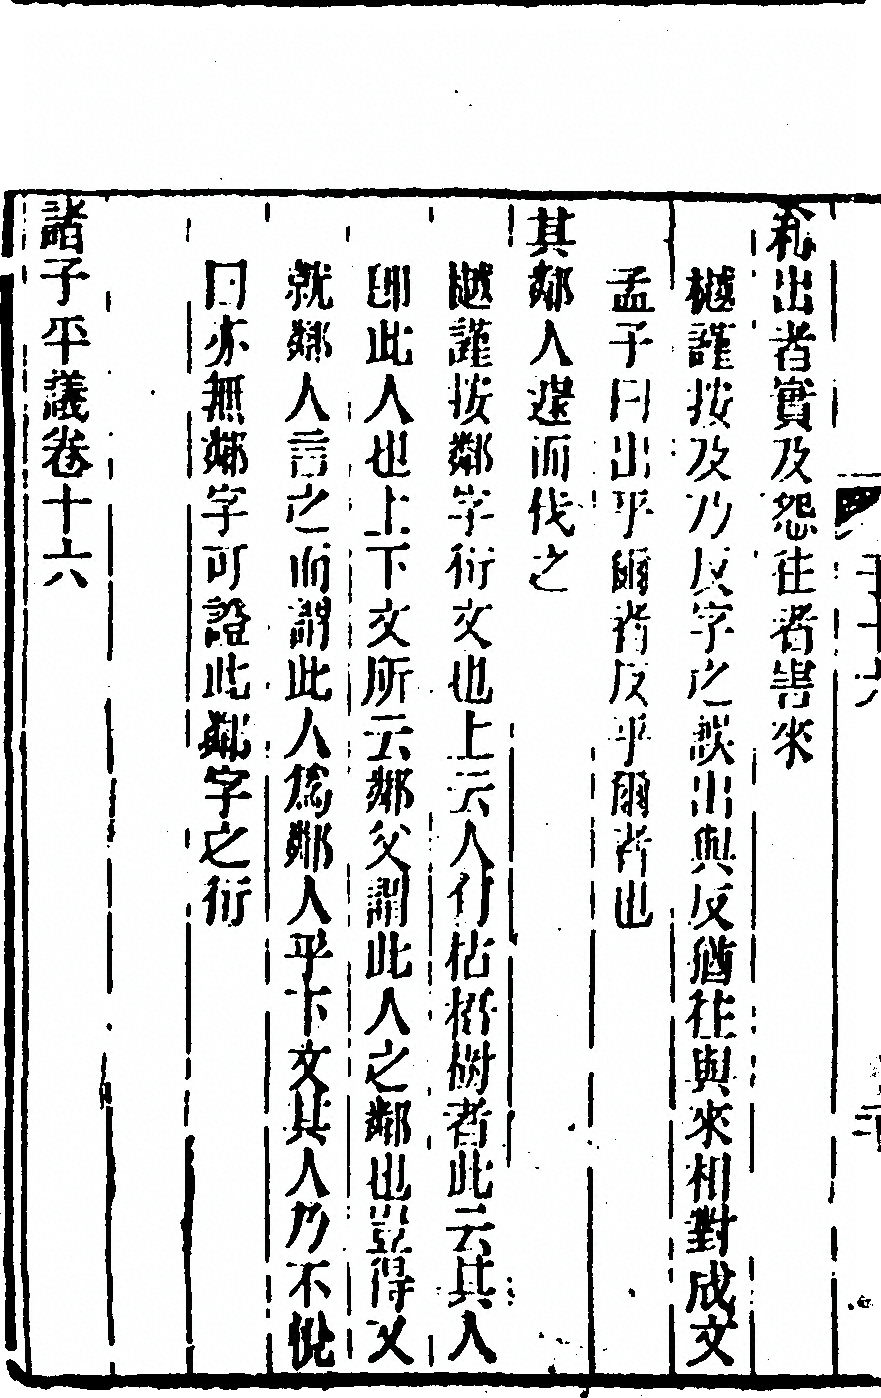 利出者實及怨往者害來
樾謹按及乃反字之誤出與反猶往與來相對成文
孟子曰出乎爾者反乎爾者也
其鄰人遽而伐之
樾謹按鄰字衍文也上云人有枯梧樹者此云其人
卽此人也上下文所云鄰父謂此人之鄰也豈得又
就鄰人言之而謂此人爲鄰人乎下文其人乃不悅
曰亦無鄰字可證此鄰字之衍
諸子平議卷十六